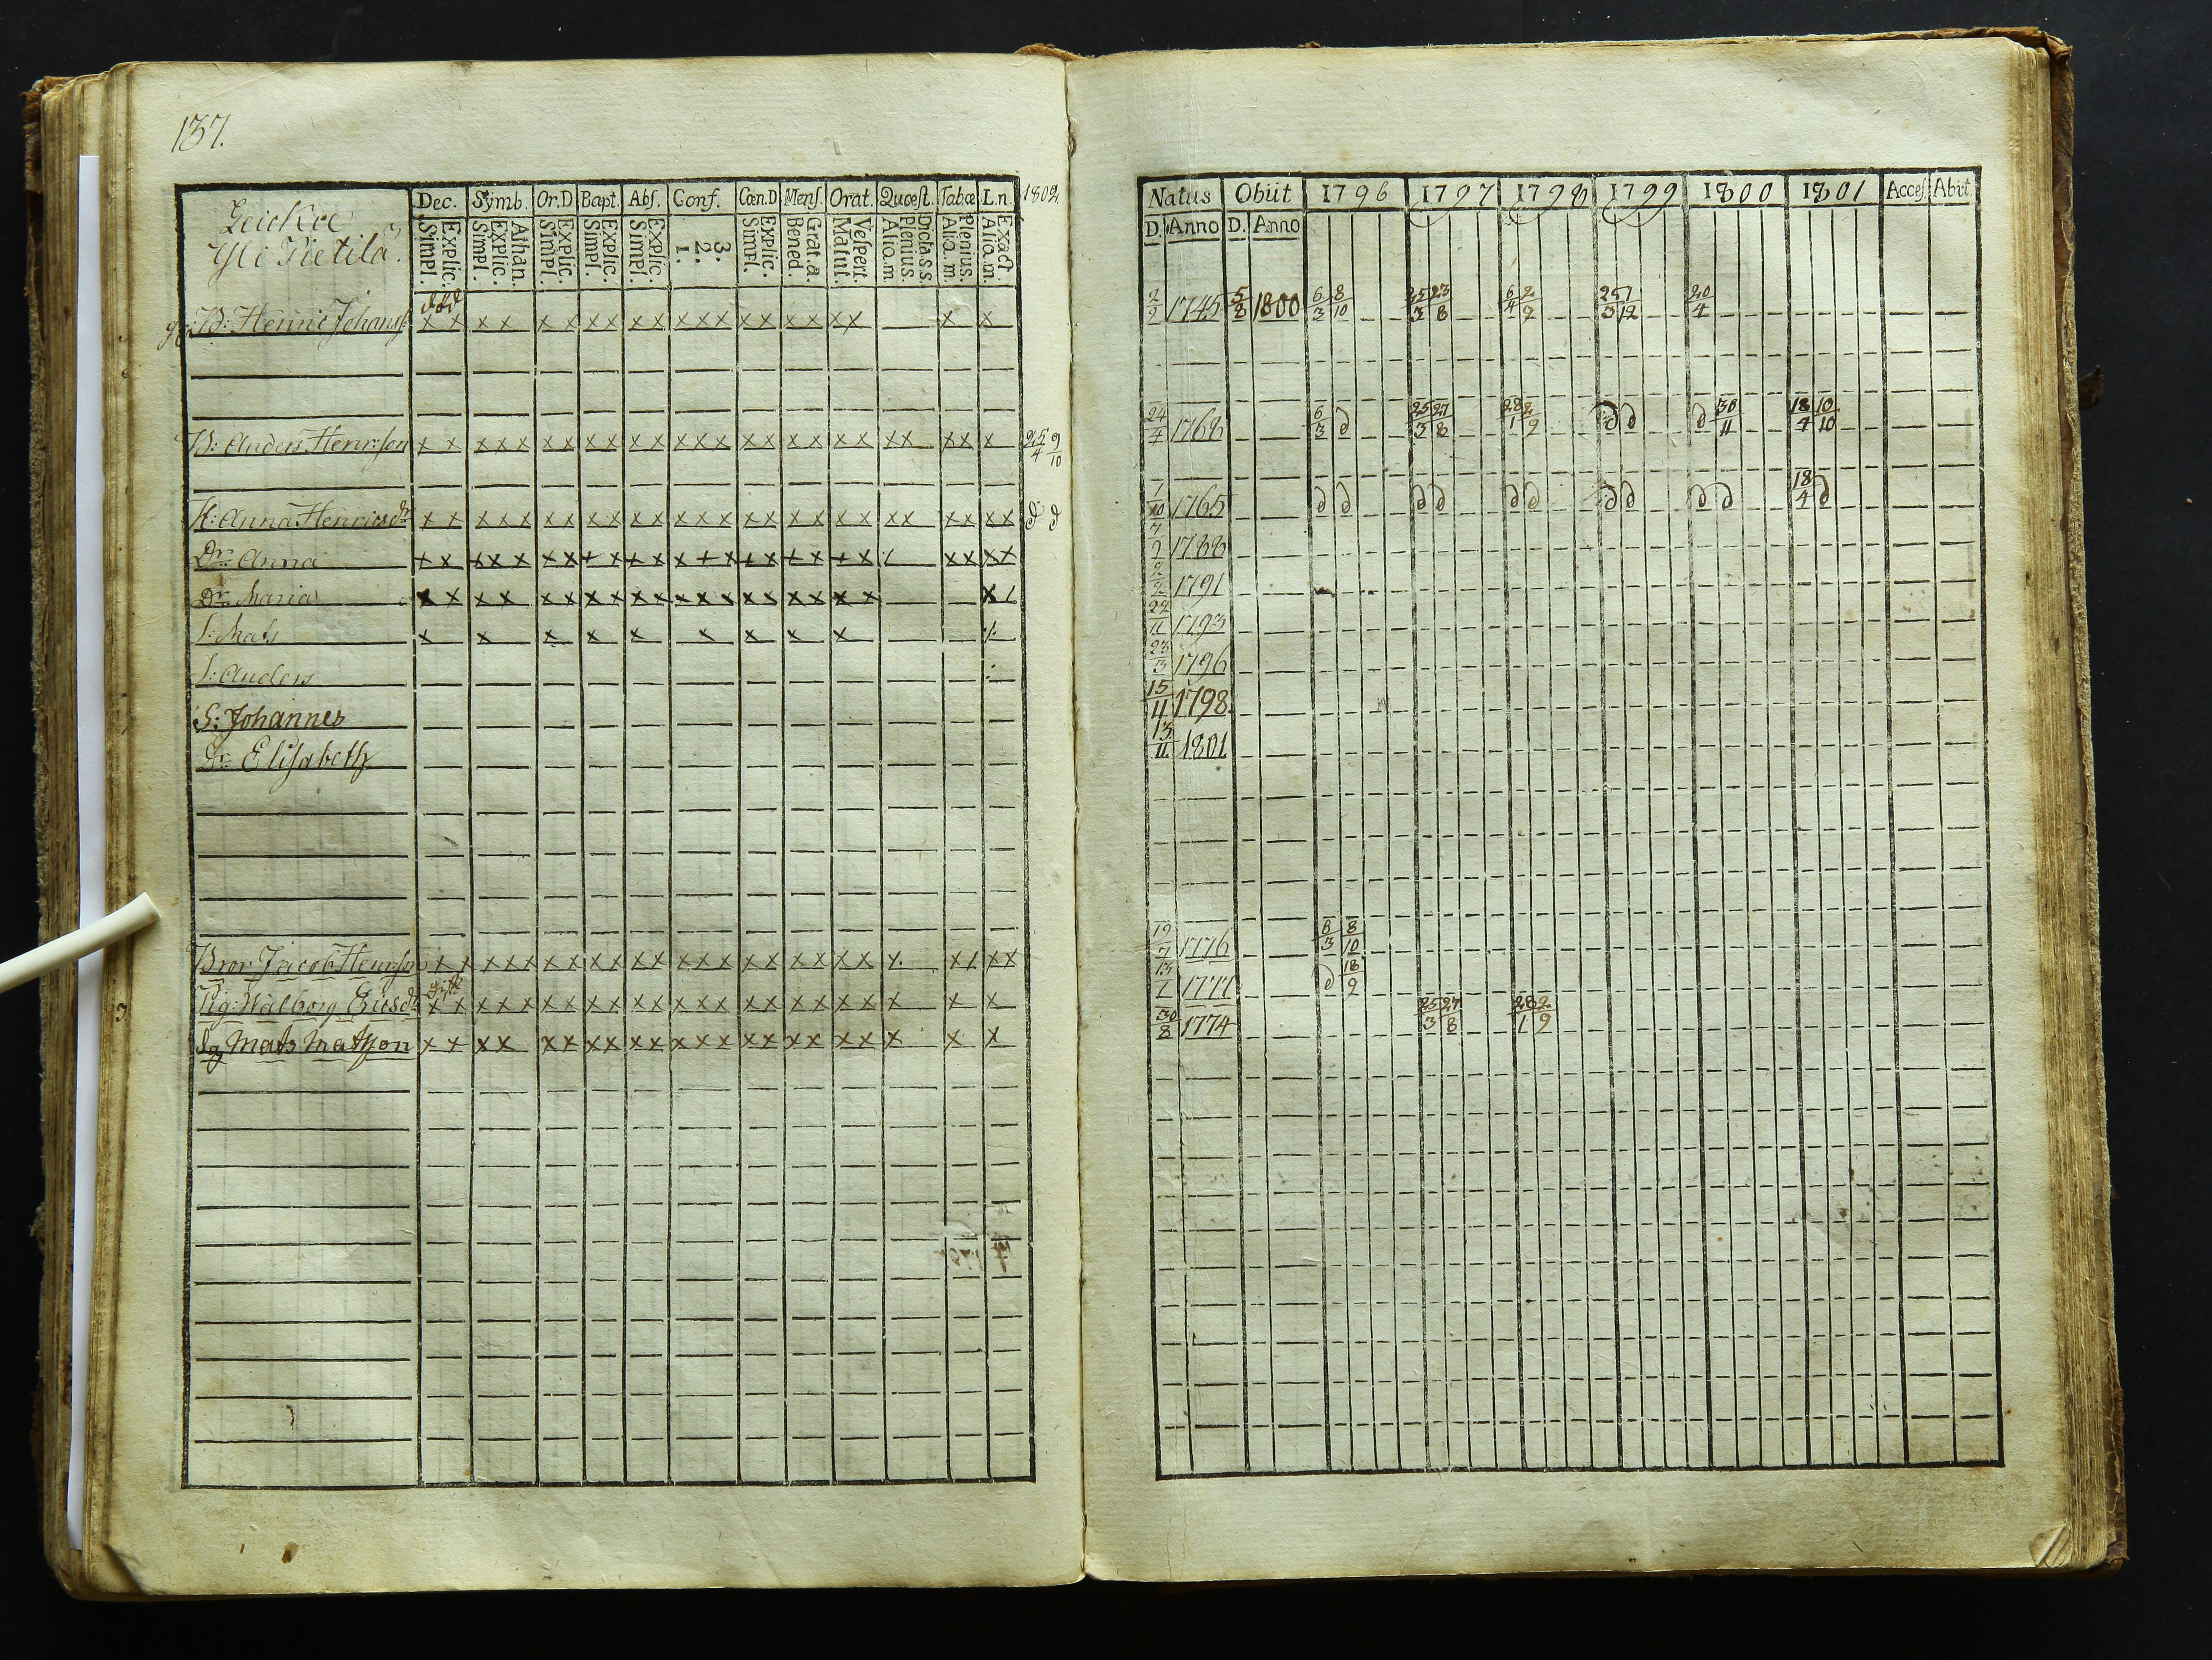 137.
Dec. Symb. Or.D Bapt. Abs. Conf. Cœn.D Mens. Orat. Quœst. Tabæ L.n 1802
Explic. Simpl. Athan. Explic. Simpl. Explic. Simpl. Explic. Simpl. Explic. Simpl. 3. 2. 1. Explic. Simpl. Grat. a. Bened. Vespert. Matut. Dicta s.s. Plenius. Alia.m. Plenius. Alia.m. Exact. Alia.m.
Yli Pietilä.
B: Henric Johanss: x x x x x x x x x x x x x x x x x x x x x
B: Anders Henricson x x x x x x x x x x x x x x x x x x x x x x x x x x 25/4 9/10
H: Anna Henricsdr x x x x x x x x x x x x x x x x x x x x x x x x x x ∂ ∂
Dr. Anna x x x x x x x x x x x x x x x x x x x x / x x x x
Dr. Maria x x x x x x x x x x x x x x x x x x x x /
S: Mats x x x x x x x x x
S: Anders
S: Johannes
Dr. Elisabeth
Bror Jacob Henricson x x x x x x x x x x x x x x x x x x x x x x x x
Pig: Walborg x x x x x x x x x x x x x x x x x x x x x x x
Mats Matsson x x x x x x x x x x x x x x x x x x x x x x
Natus Obiit 1796 1797 1798 1799 1800 1801 Acces. Abit.
D. Anno D. Anno
2/2 1745 5/8 1800 6/3 8/10 25/3 23/8 6/4 2/9 25/3 1/12 20/4
24/4 1768 6/3 ∂ 25/3 27/8 28/1 2/9 ∂ ∂ ∂ 30/11 18/4 10/10
1/10 1765 ∂ ∂ ∂ ∂ ∂ ∂ ∂ ∂ ∂ ∂ 18/4 ∂
1788
1791
22/11 1793
23/3 1796
15/4 1798
13/11 1801
19/7 1776 6/3 8/10
13/1 1777 ∂ 18/9
30/8 1774 25/3 27/8 28/1 2/9